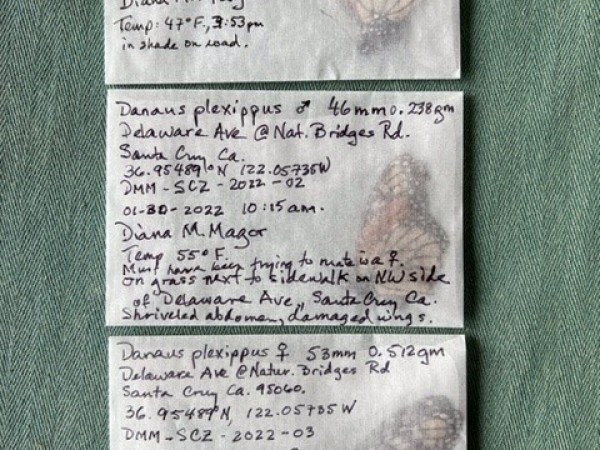 Temp: 47°F, 3:53pm
in shade on road.
Danaus plexippus ♂ 46mm 0.238gm
Delaware Ave @ Nat. Bridges Rd.
Santa Cruz Ca.
36.95489°N 122.05735W
DMM-SCZ-2022-02
01-30-2022 10:15am.
Diana M. Magor
Temp 55°F.
Must have been trying to mate w a ♀.
on grass next to sidewalk on NW side
of Delaware Ave., Santa Cruz Ca.
Shriveled abdomen, damaged wings.
Danaus plexippus ♀ 53mm 0.512gm
Delaware Ave @ Natur. Bridges Rd
Santa Cruz Ca. 95060.
36.95489°N, 122.05735W
DMM-SCZ-2022-03